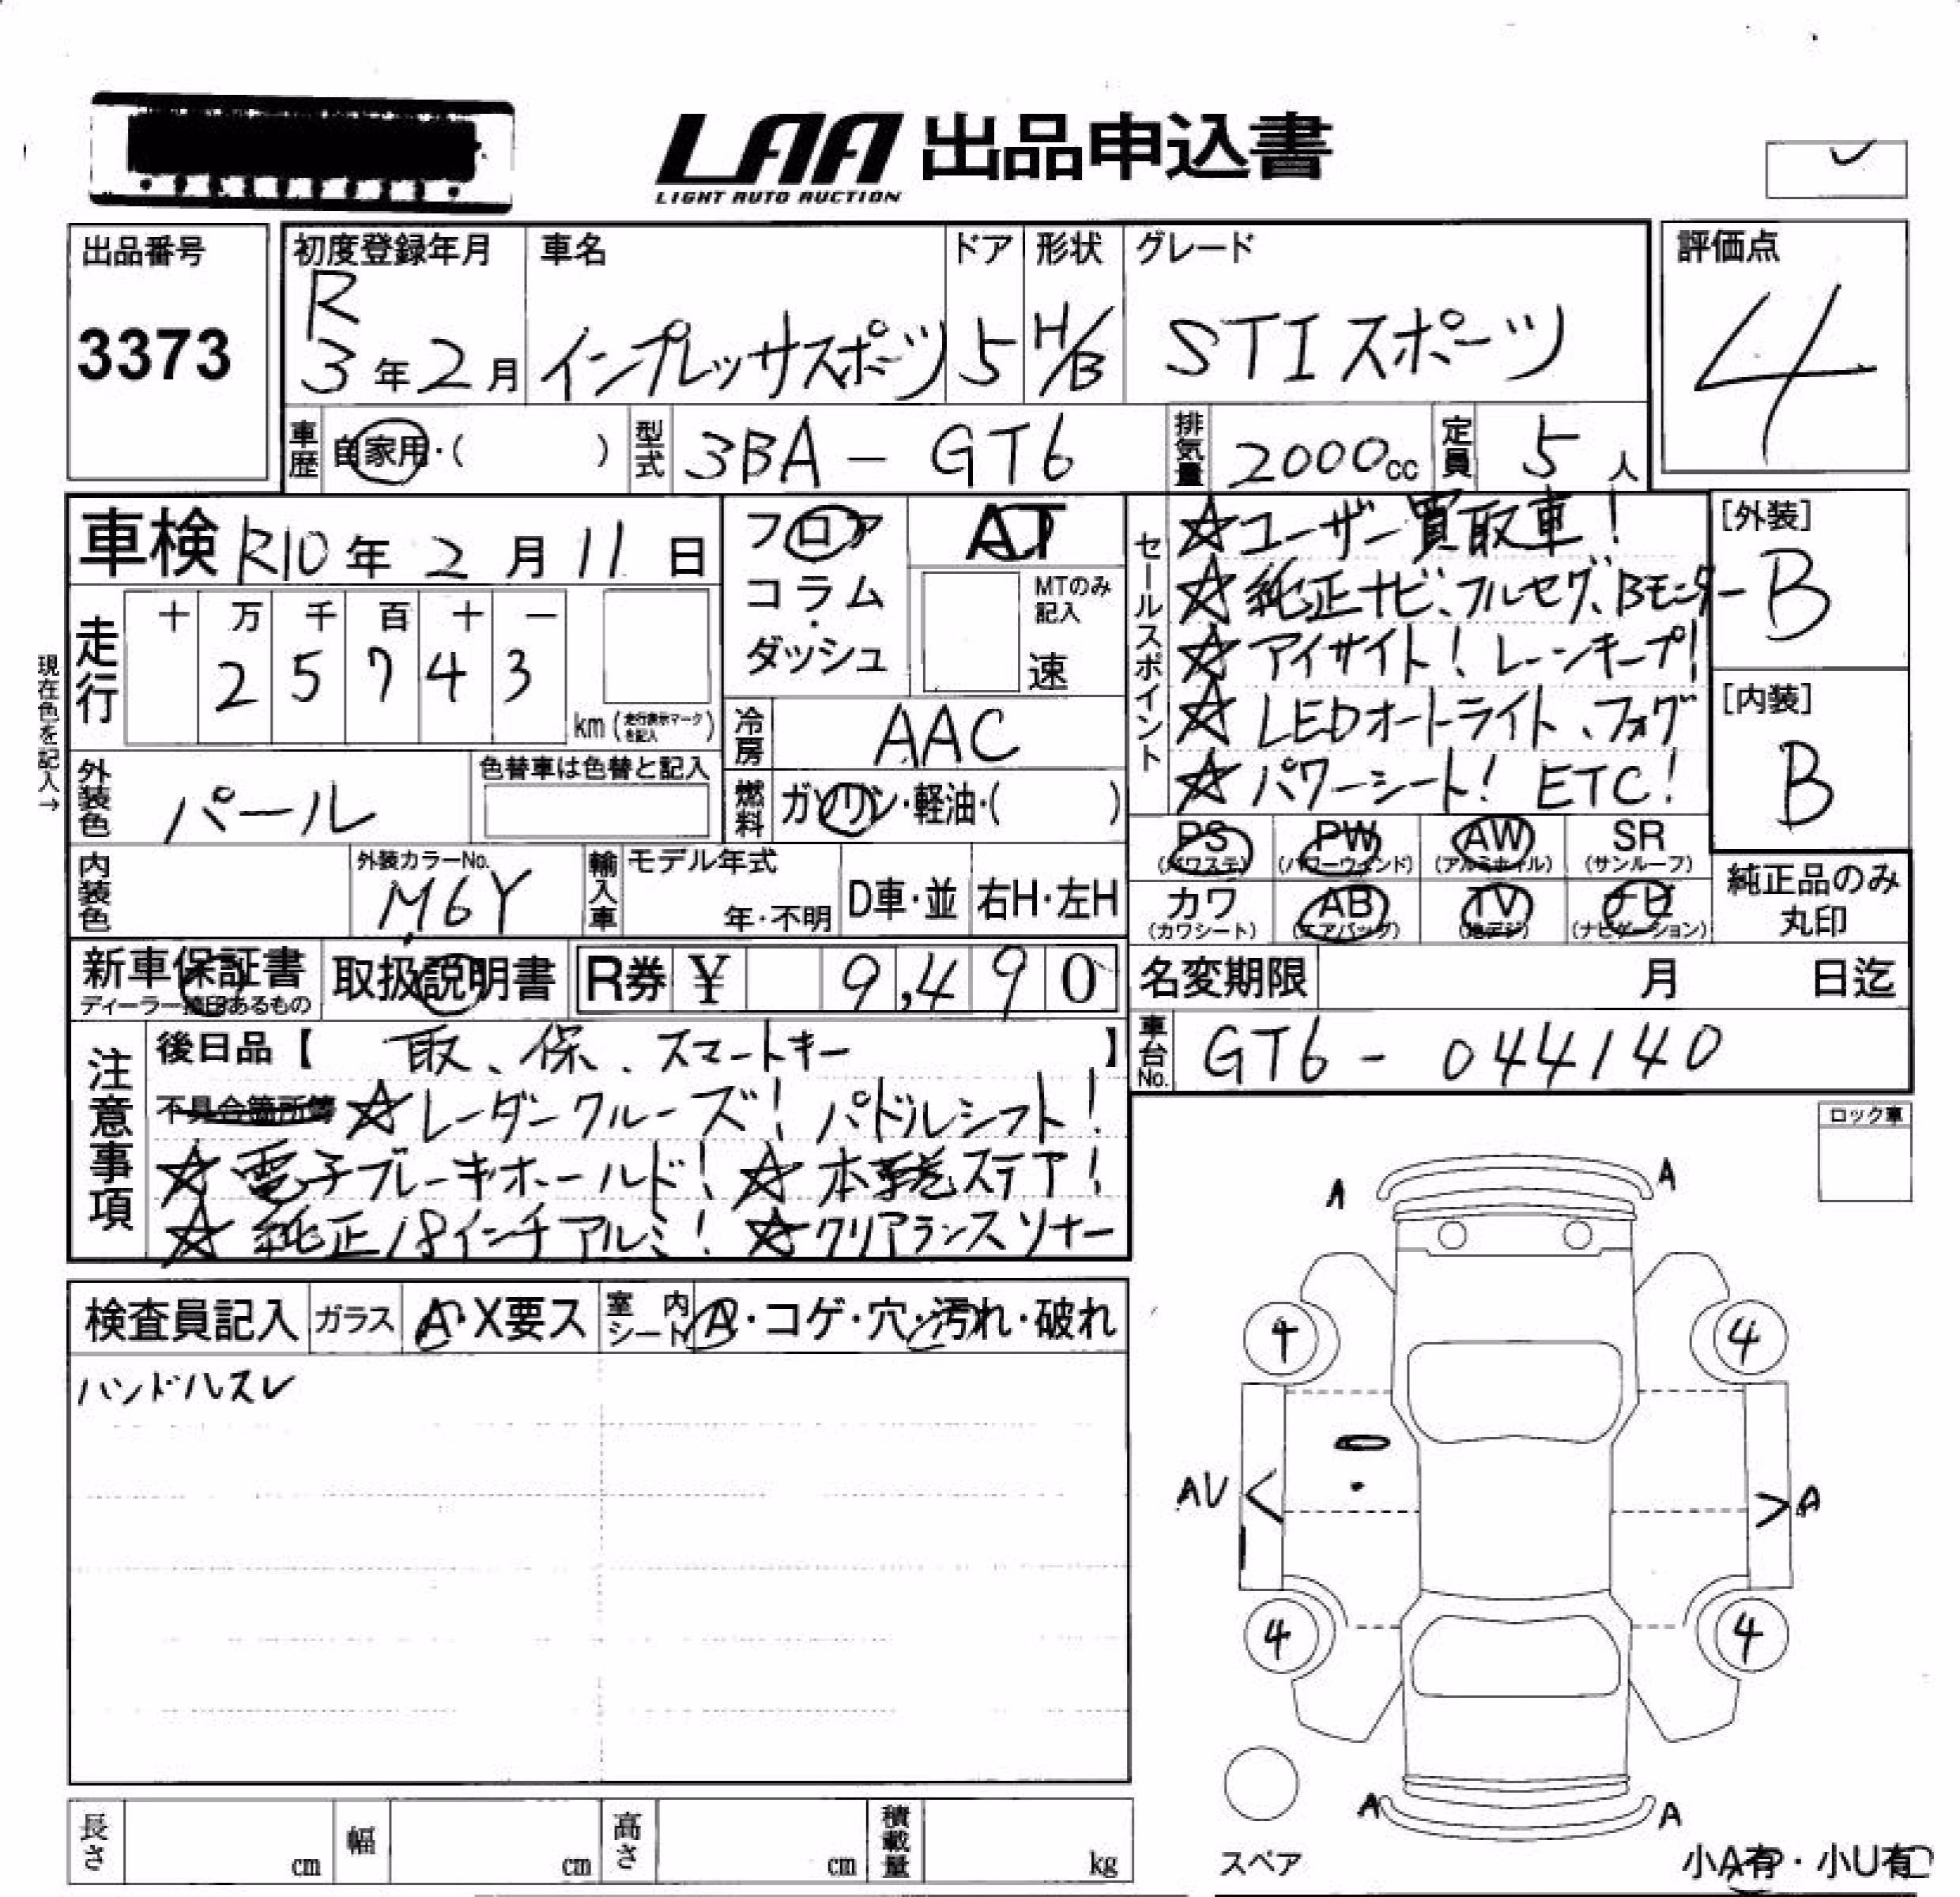 LAA 出品申込書
LIGHT AUTO AUCTION
出品番号 3373
初度登録年月 R 3年2月
車名 インプレッサスポーツ
ドア 5
形状 H/B
グレード STIスポーツ
評価点 4
車歴 自家用・( )
型式 3BA-GT6
排気量 2000cc
定員 5人
車検 R10年2月11日
フロア
コラム・
ダッシュ
AT
MTのみ記入
速
走行 十 万 千 百 十 一
2 5 7 4 3
km(走行表示マークを記入)
現在色を記入→
冷房 AAC
燃料 ガソリン・軽油・( )
外装色 パール
色替車は色替と記入
内装色
外装カラーNo. M6Y
輸入車 モデル年式
年・不明
D車・並
右H・左H
セールスポイント
☆ユーザー買取車!
☆純正ナビ、フルセグ、Bモニター
☆アイサイト!レーンキープ!
☆LEDオートライト、フォグ
☆パワーシート! ETC!
[外装] B
[内装] B
PS(パワステ)
PW(パワーウィンド)
AW(アルミホイル)
SR(サンルーフ)
カワ(カワシート)
AB(エアバッグ)
TV(地デジ)
ナビ(ナビゲーション)
純正品のみ
丸印
新車保証書
ディーラー捺印あるもの
取扱説明書
R券 ¥ 9,490
名変期限 月 日迄
車台No. GT6-044140
注意事項
後日品【 取、保、スマートキー 】
不具合箇所簿 ☆レーダークルーズ!パドルシフト!
☆電子ブレーキホールド!☆本革巻ステア!
☆純正18インチアルミ!☆クリアランスソナー
ロック車
検査員記入
ガラス A・X要ス
室内シート A・コゲ・穴・汚れ・破れ
ハンドルスレ
A A
4 4
AU A
4 4
A A
スペア
小A有・小U有
長さ cm
幅 cm
高さ cm
積載量 kg